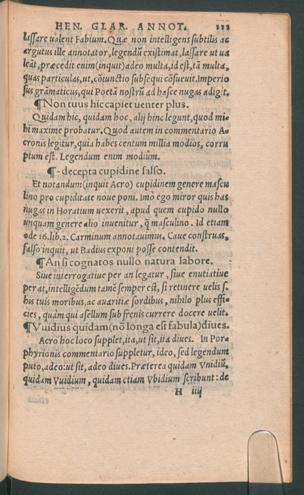 HEN. GLAR. ANNOT.
lassare valent Fabium. Quæ non intelligens subtilis ac
argutus ille annotator, legendũ existimat, lassare ut ua
leãt, præcedit enim (inquit) adeo multa, id est, tã multa,
quas particulas, ut, cõiunctio subsequi cõsueuit. Imperio
sus grãmaticus, qui Poetã nostrũ ad hasce nugas adigit.
¶ Non tuus hic capiet uenter plus.
Quidam hic, quidam hoc, alij hinc legunt, quod mi-
hi maxime probatur. Quod autem in commentario A-
cronis legitur, quia habes centum millia modios, corru
ptum est. Legendum enim modium.
¶ - decepta cupidine falso.
Et notandum (inquit Acro) cupidinem genere mascu
lino pro cupiditate noue poni. Imò ego miror quis has
nugas in Horatium uexerit, apud quem cupido nullo
unquam genere alio inuenitur, q̃ masculino. Id etiam
ode 16. lib. 2. Carminum annotauimus. Caue construas,
falso inquit, ut Badius exponi posse contendit.
¶ An si cognatos nullo natura labore.
Siue interrogatiue per an legatur, siue enutiatiue
per at, intelligẽdum tamẽ semper est, si retinere uelis s-
bi tuis moribus, ac auaritiæ sordibus, nihilo plus effi-
cies, quàm qui asellum sub frenis currere docere uelit.
¶ Vuidius quidam (nõ longa est fabula) diues.
Acro hoc loco supplet, ita, ut sit, ita diues. In Por-
phyrionis commentario suppletur, ideo, sed legendum
puto, adeo: ut sit, adeo diues. Præterea quidam Vnidiũ,
quidam Vuidium, quidam etiam Vbidium scribunt: de
H iiij